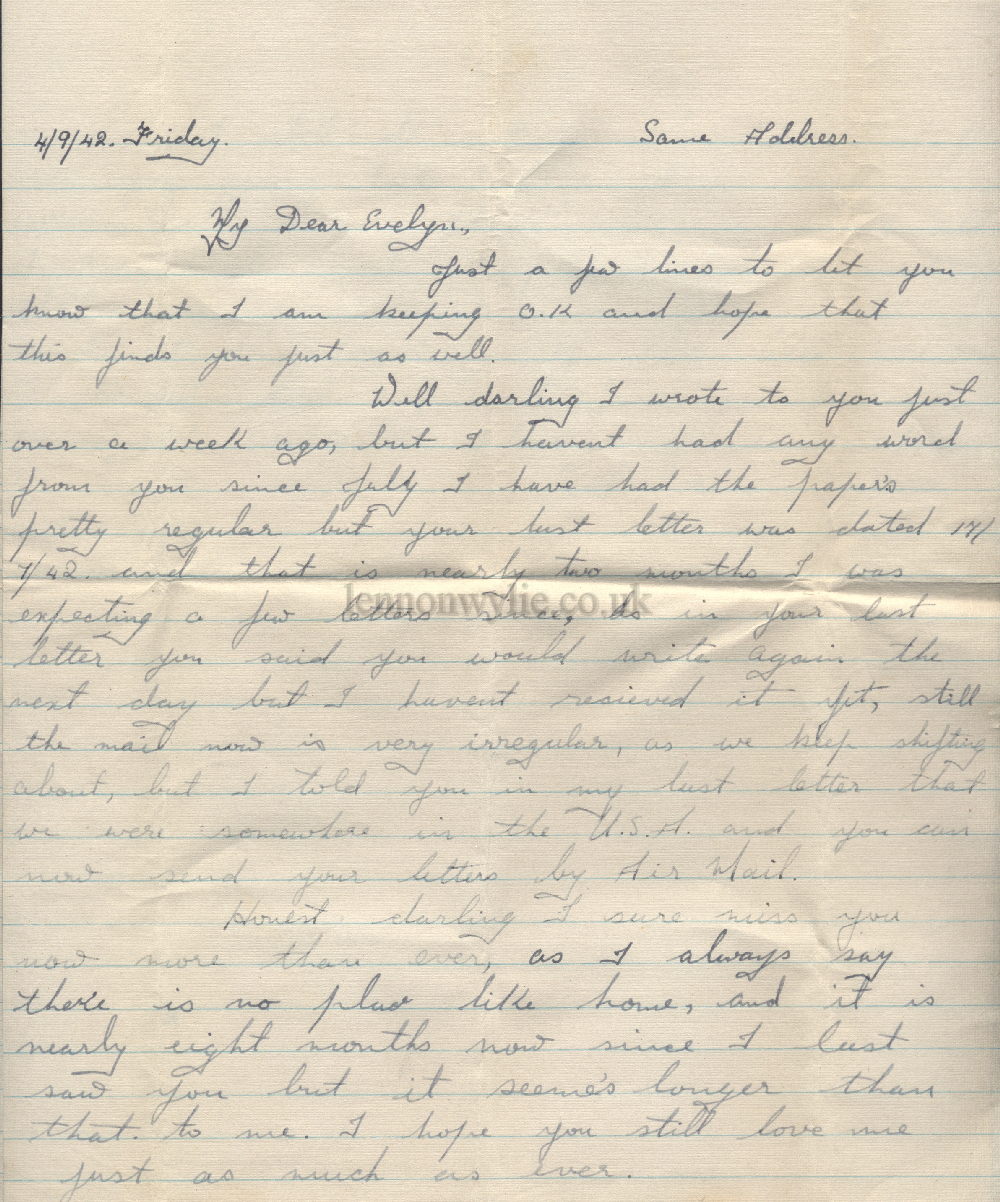 4/9/42. Friday.
Same Address.
My Dear Evelyn.,
Just a few lines to let you
know that I am keeping O.K and hope that
this finds you just as well.
Well darling I wrote to you just
over a week ago, but I havent had any word
from you since July I have had the paper's
pretty regular but your last letter was dated 17/
7/42. and that is nearly two months I was
lennonwylie.co.uk
expecting a few letters since, as in your last
letter you said you would write again the
next day but I havent recieved it yet, still
the mail now is very irregular, as we keep shifting
about, but I told you in my last letter that
we were somewhere in the U.S.A. and you can
now send your letters by Air Mail.
Honest darling I sure miss you
now more than ever, as I always say
there is no place like home, and it is
nearly eight months now since I last
saw you but it seeme's longer than
that. to me. I hope you still love me
just as much as ever.